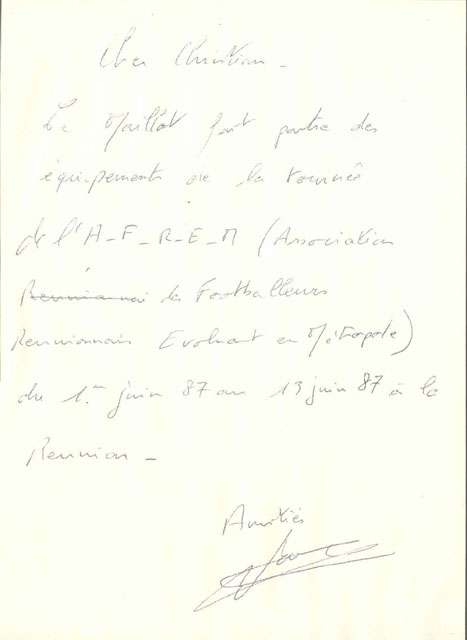 Cher Christian -
Le Maillot fait partie des
équipements de la tournée
de l'A-F-R-E-M (Association
Reunionnai des Footballeurs
Reunionnais Evoluant en Métropole)
du 1er juin 87 au 13 juin 87 à la
Reunion -
Amitiés